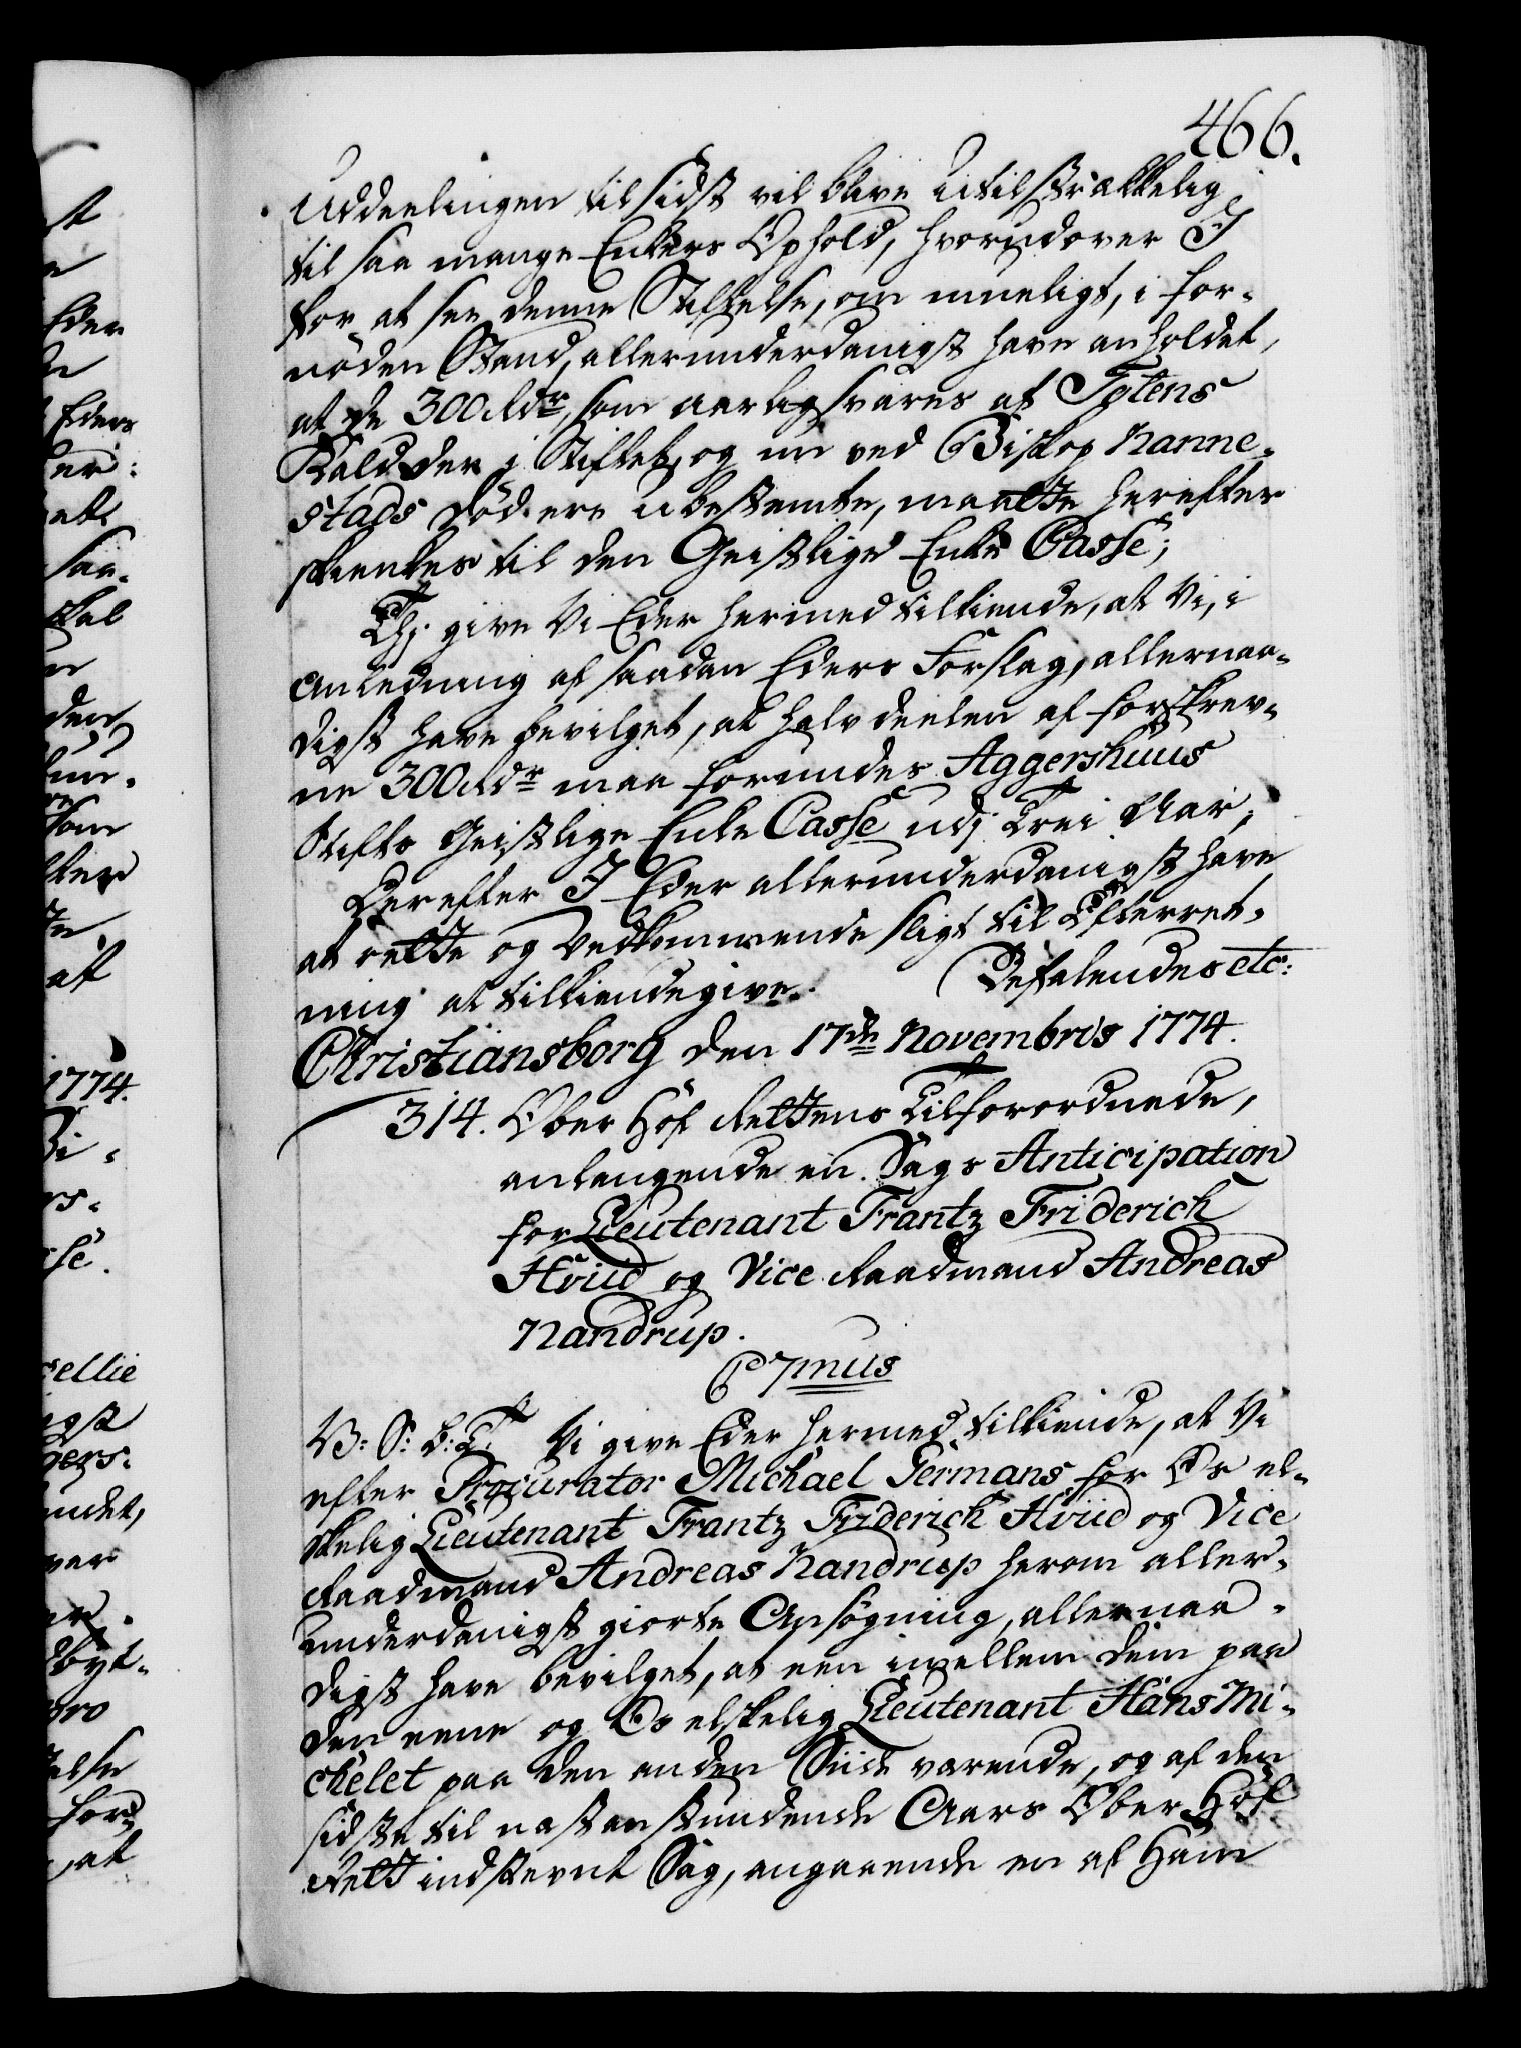 466.
Uddeelingen til sidst vil blive utilstrækkelig
til saa mange Enkers Ophold, hvorudover I
for at see denne Stiftelse, om mueligt, i for-
nöden Stand, allerunderdanigst have anholdet,
at de 300 Rdr, som aarlig svares af Totens
Kald der i Stiftet, og nu ved Biskop Nanne-
stads Död ere ubestemte, maatte herefter
skienkes til den Geistlige Enke Casse;
Thj give Vi Eder hermed tilkiende, at Vi, i
Anledning af saadan Eders Forslag, allernaa-
digst have bevilget, at halvdeelen af forskrev-
ne 300 Rdr maa forundes Aggershuus
Stifts Geistlige Enke Casse udj Trei Aar;
Derefter I Eder allerunderdanigst have
at rette og Vedkommende sligt til Efterret-
ning at tilkiendegive. Befalendes etc:
Christiansborg den 17de Novembris 1774.
314. Ober Hof Rettens Tilforordnede,
anlangende en Sags Anticipation
for Lieutenant Frantz Friderich
Hviid og Vice Raadmand Andreas
Nandrup.
C 7mus
V: S: b: T: Vi give Eder hermed tilkiende, at Vi
efter Procurator Michael Germans for Os el-
skelig Lieutenant Frantz Friderich Hviid og Vice
Raadmand Andreas Nandrup herom aller-
underdanigst giorte Ansögning, allernaa-
digst have bevilget, at een imellem dem paa
den eene og Os elskelig Lieutenant Hans Mi-
chelet paa den anden Siide værende, og af den
sidste til næstanstundende Aars Ober Hof
Rett indstevnt Sag, angaaende en af Ham